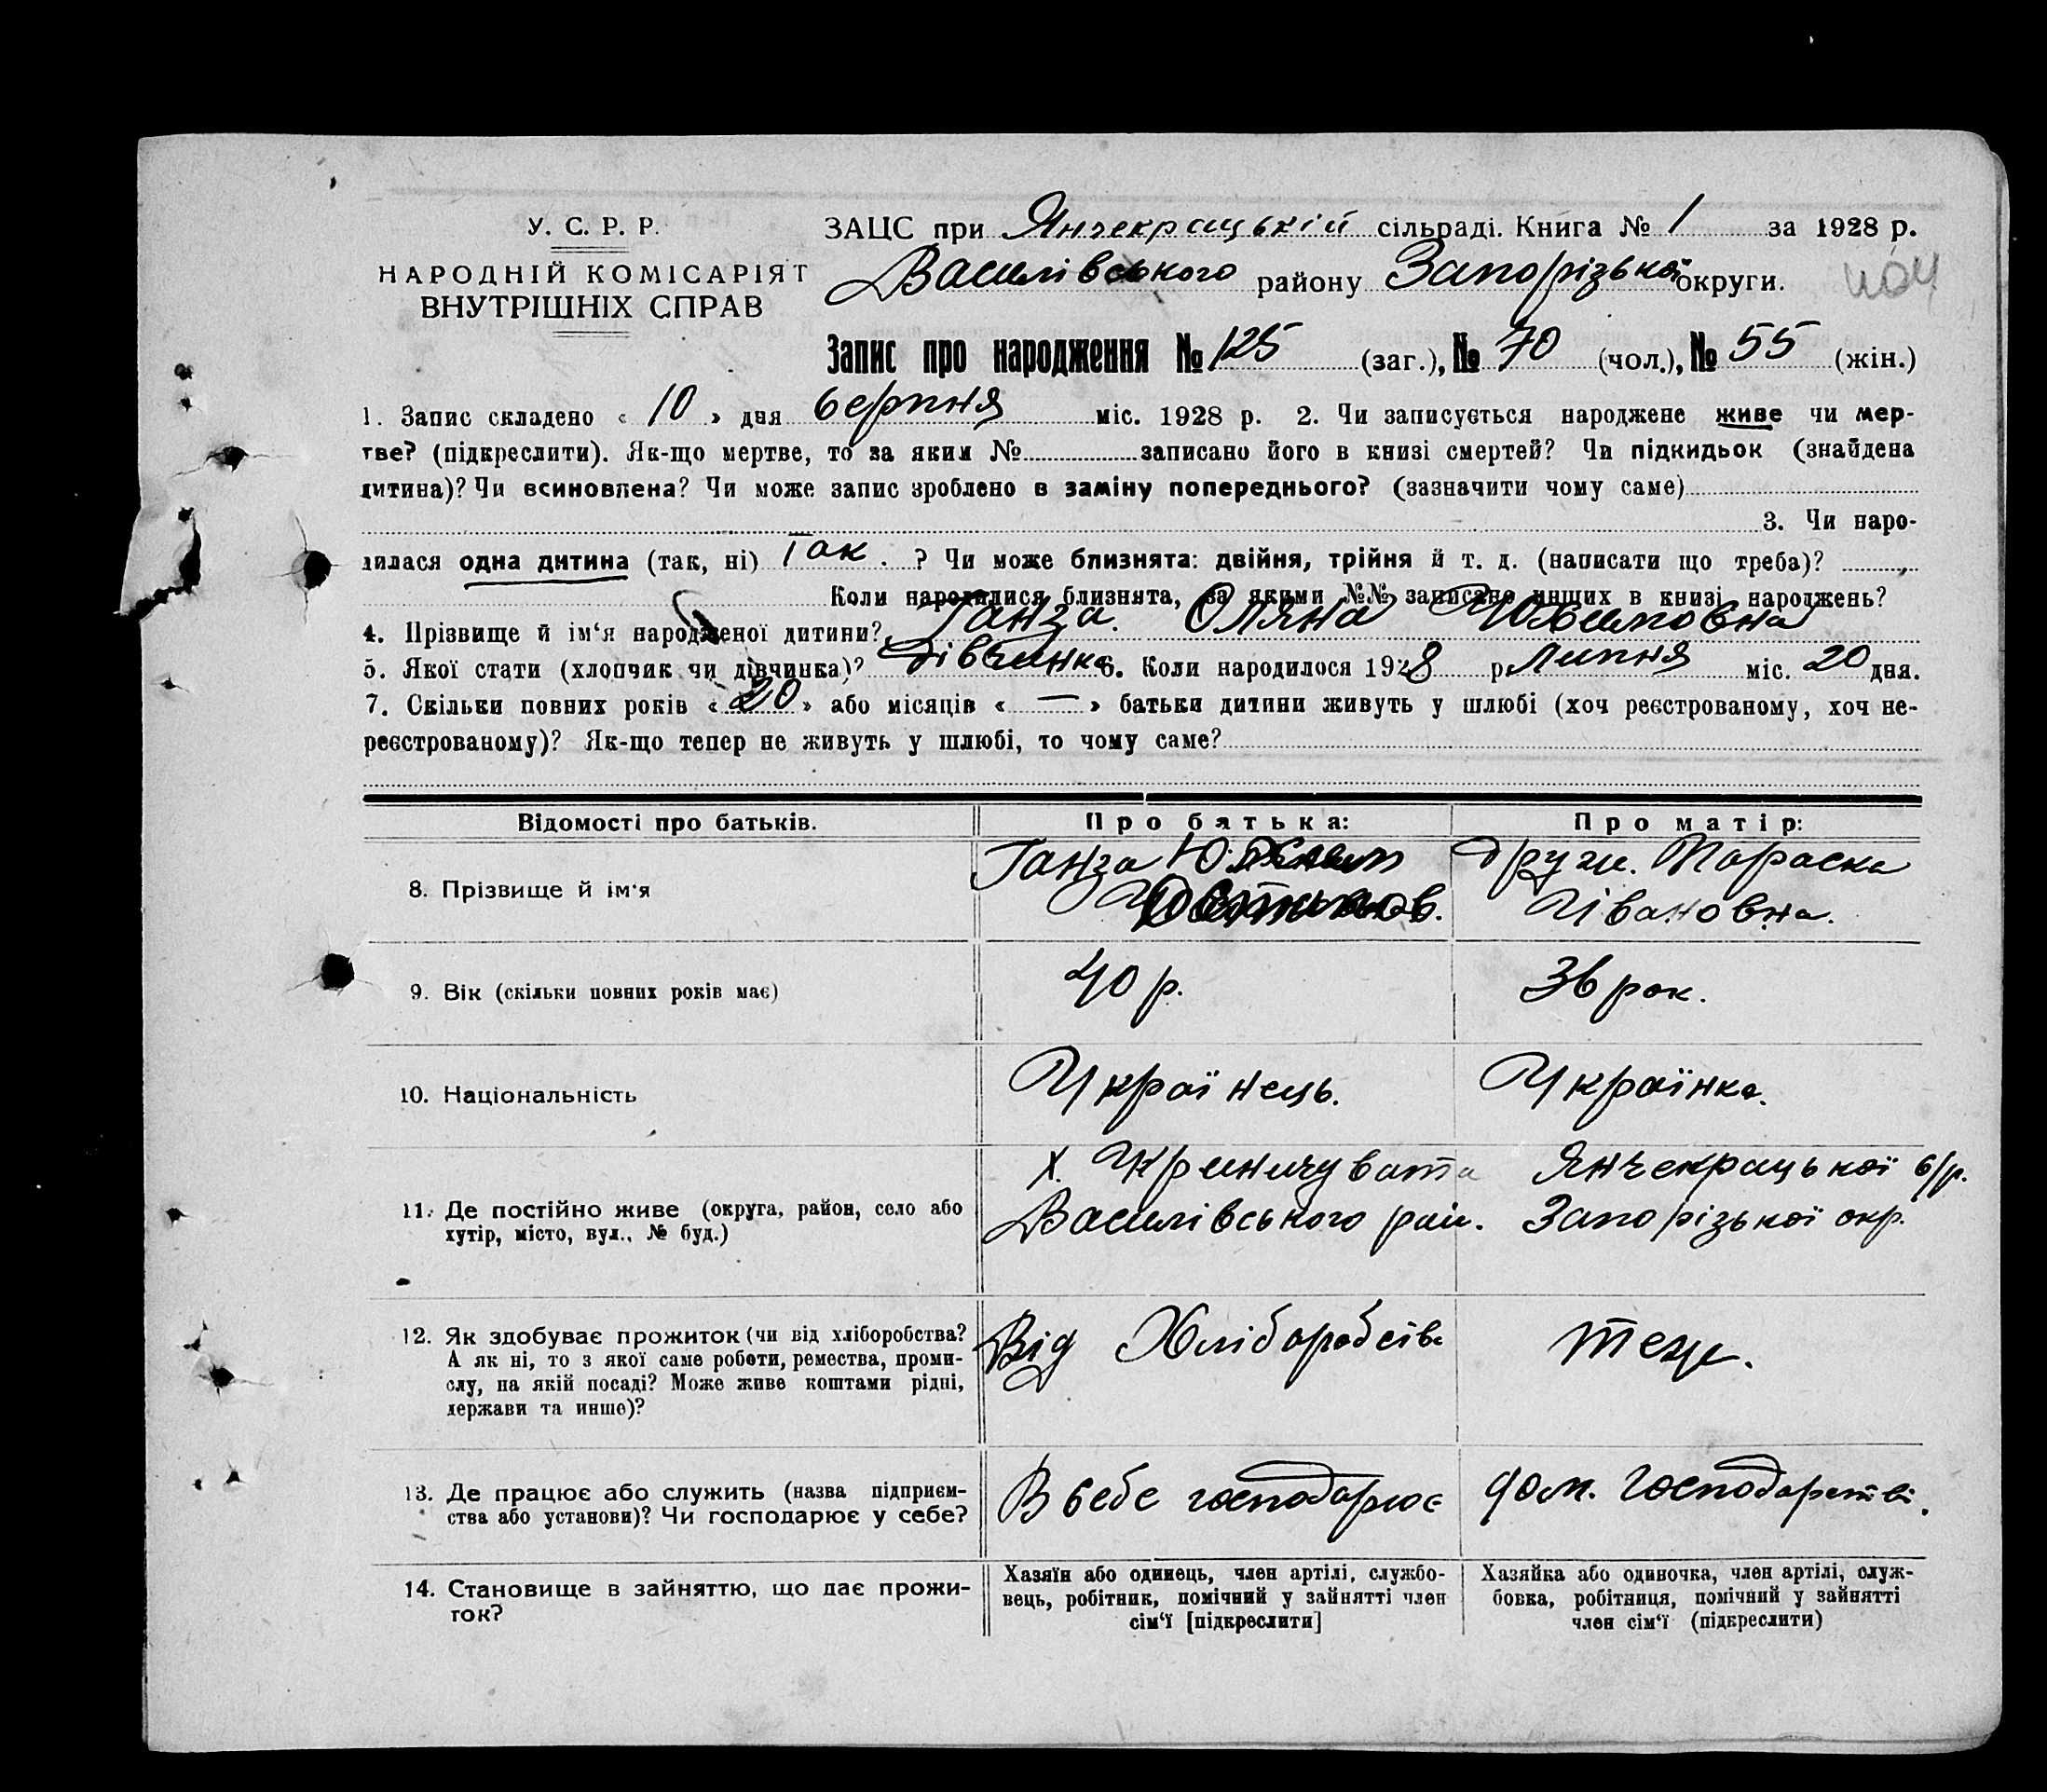 У. С. Р. Р.
НАРОДНІЙ КОМІСАРІЯТ
ВНУТРІШНІХ СПРАВ
ЗАЦС при Янчекрацькій сільраді. Книга № 1 за 1928 р.
Василівського району Запорізької округи.
Запис про народження № 125 (заг.), № 70 (чол.), № 55 (жін.)
1. Запис складено « 10 » дня серпня міс. 1928 р. 2. Чи записується народжене живе чи мер-
тве? (підкреслити). Як-що мертве, то за яким № записано його в книзі смертей? Чи підкидьок (знайдена
дитина)? Чи всиновлена? Чи може запис зроблено в заміну попереднього? (зазначити чому саме)
3. Чи наро-
дилася одна дитина (так, ні) Так. ? Чи може близнята: двійня, трійня й т. д. (написати що треба)?
Коли народилися близнята, за якими №№ записано инших в книзі народжень?
4. Прізвище й ім‘я народженої дитини? Ганза. Оляна Юхимовна
5. Якої стати (хлопчик чи дівчинка)? Дівчинка 6. Коли народилося 1928 р. Липня міс. 20 дня.
7. Скільки повних років « 20 » або місяців « — » батьки дитини живуть у шлюбі (хоч реєстрованому, хоч не-
реєстрованому)? Як-що тепер не живуть у шлюбі, то чому саме?
Відомості про батьків. Про батька: Про матір:
8. Прізвище й ім‘я
Ганза Юхим
друж. Параска
Івановна.
9. Вік (скільки повних років має) 40 р. 36 рок.
10. Національність Українець. Українка.
11. Де постійно живе (округа, район, село або
хутір, місто, вул., № буд.)
х. Криничувата Янчекрацької с/р.
Василівського рай. Запорізької окр.
12. Як здобуває прожиток (чи від хліборобства?
А як ні, то з якої саме роботи, ремества, проми-
слу, на якій посаді? Може живе коштами рідні,
держави та инше)?
Від Хліборобства теж.
13. Де працює або служить (назва підприєм-
ства або установи)? Чи господарює у себе?
В себе господарює дом. господарстві.
14. Становище в зайняттю, що дає прожи-
ток?
Хазяїн або одинець, член артілі, службо-
вець, робітник, помічний у зайнятті член
сім‘ї [підкреслити]
Хазяйка або одиночка, член артілі, служ-
бовка, робітниця, помічний у зайнятті
член сім‘ї (підкреслити)